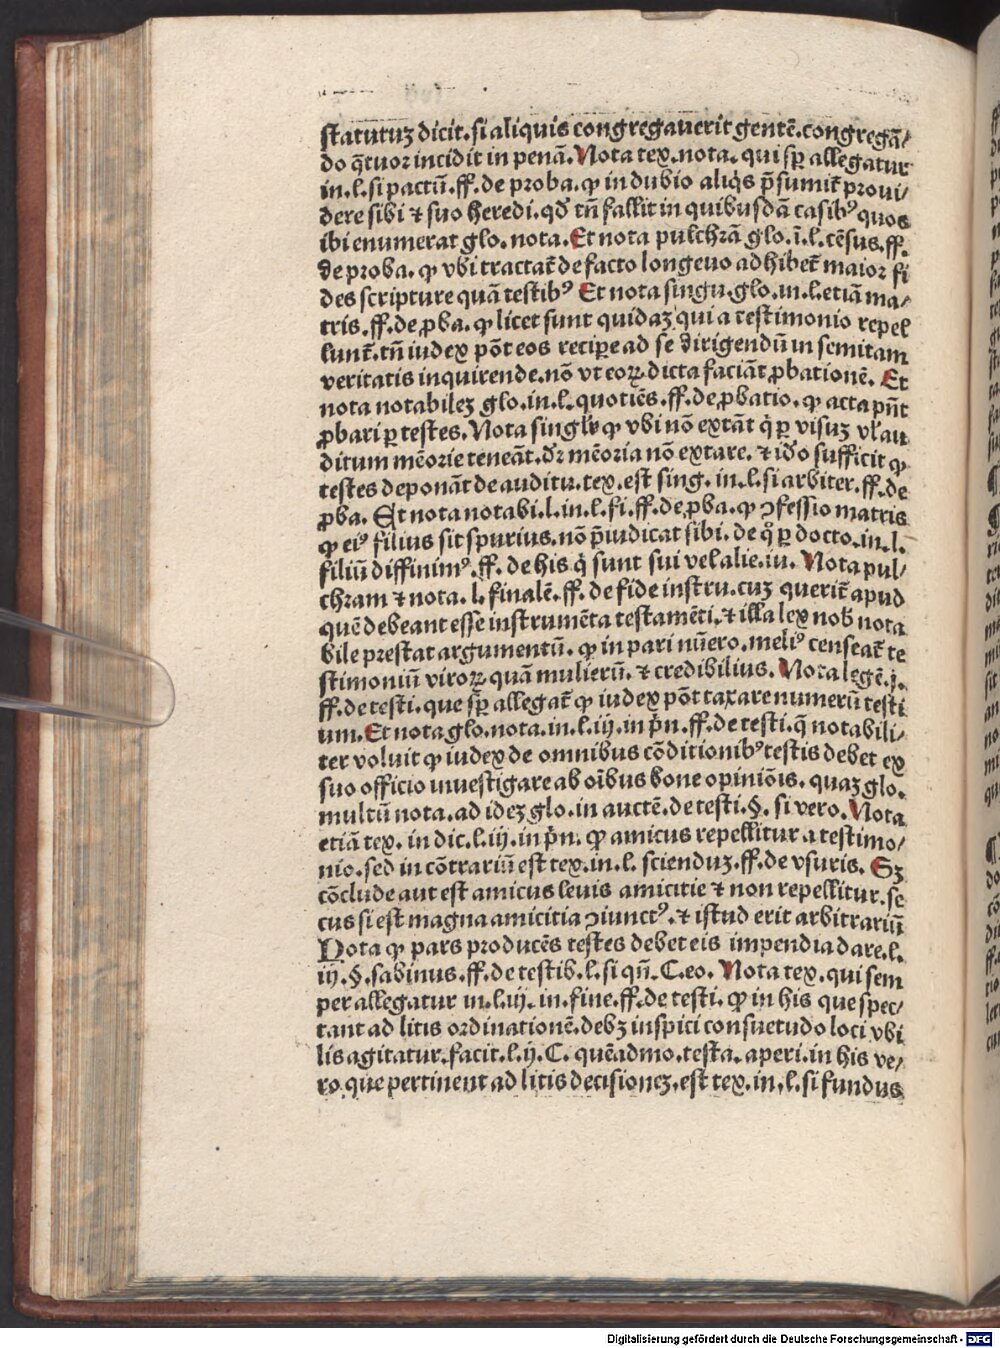 ſtatutuꝫ dicit. ſi aliquis congregauerit gentē. congregā⸗
do q̄tuor incidit in penā. Nota tex. nota. qui ſꝑ allegatur
in. l. ſi pactū. ff. de proba. ꝙ in dubio aliq̇s p̄ſumit̄ proui⸗
dere ſibi ⁊ ſuo heredi. qđ tn̄ fallit in quibuſdā caſibꝰ quos
ibi enumerat glo. nota. Et nota pulchrā glo. ī. l. cēſus. ff.
de proba. ꝙ vbi tractat̄ de facto longeuo adhibet̄ maior fi
des ſcripture quā teſtibꝰ Et nota ſingu. glo. in. l. etiā ma⸗
tris. ff. de ꝓba. ꝙ licet ſunt quidaꝫ qui a teſtimonio repel
lunt̄. tn̄ iudex pōt eos recipe ad ſe dirigendū in ſemitam
veritatis inquirende. nō vt eoꝝ dicta faciāt ꝓbationē. Et
nota notabileꝫ glo. in. l. quotiēs. ff. de ꝓbatio. ꝙ acta pn̄t
ꝓbari ꝑ teſtes. Nota ſingĺr ꝙ vbi nō extāt q̇ ꝑ viſuꝫ vĺ au
ditum mēorie teneāt. dr̄ mēoria nō extare. ⁊ iđo ſufficit ꝙ
teſtes deponāt de auditu. tex. eſt ſing. in. l. ſi arbiter. ff. de
ꝓba. Et nota notabi. l. in. l. fi. ff. de ꝓba. ꝙ ꝯfeſſio matris
ꝙ eiꝰ filius ſit ſpurius. nō p̄iudicat ſibi. de qͦ ꝑ docto. in. l.
filiū diffinimꝰ. ff. de his q̇ ſunt ſui vel alie. iu. Nota pul⸗
chram ⁊ nota. l. finalē. ff. de fide inſtru. cuꝫ querit̄ apud
quē debeant eſſe inſtrumēta teſtamēti. ⁊ illa lex nob̄ nota
bile preſtat argumentū. ꝙ in pari nūero. meliꝰ cenſeat̄ te
ſtimoniū viroꝝ quā mulierū. ⁊ credibilius. Nota legē. j.
ff. de teſti. que ſꝑ allegat̄ ꝙ iudex pōt taxare numerū teſti
um. Et nota glo. nota. in. l. iij. in pn̄. ff. de teſti. q̄ notabili⸗
ter voluit ꝙ iudex de omnibus cōditionibꝰ teſtis debet ex
ſuo officio inueſtigare ab oībus bone opiniōis. quaꝫ glo.
multū nota. ad ideꝫ glo. in auctē. de teſti. §. ſi vero. Nota
etiā tex. in dic. l. iij. in pn̄. ꝙ amicus repellitur a teſtimo⸗
nio. ſed in cōtrariū eſt tex. in. l. ſcienduꝫ. ff. de vſuris. Sꝫ
cōclude aut eſt amicus leuis amicitie ⁊ non repellitur. ſe
cus ſi eſt magna amicitia ꝯiunctꝰ. ⁊ iſtud erit arbitrariū
Nota ꝙ pars producēs teſtes debet eis impendia dare. l.
iij. §. ſabinus. ff. de teſtib. l. ſi qn̄. C. eo. Nota tex. qui ſem
per allegatur in. l. iij. in. fine. ff. de teſti. ꝙ in his que ſpec⸗
tant ad litis ordinationē. debꝫ inſpici conſuetudo loci vbi
lis agitatur. facit. l. ij. C. quēadmo. teſta. aperi. in his ve⸗
ro. que pertinent ad litis deciſioneꝫ. eſt tex. in. l. ſi fundus
Digitalisierung gefördert durch die Deutsche Forschungsgemeinschaft - DFG